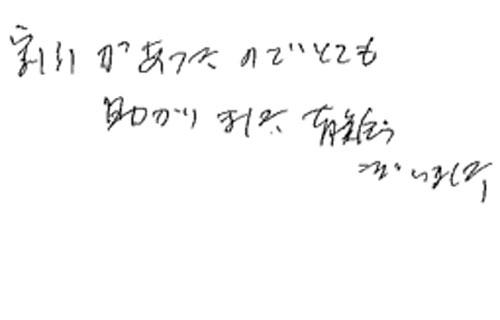 割引があったのでとても
助かりました 有難う
ございました